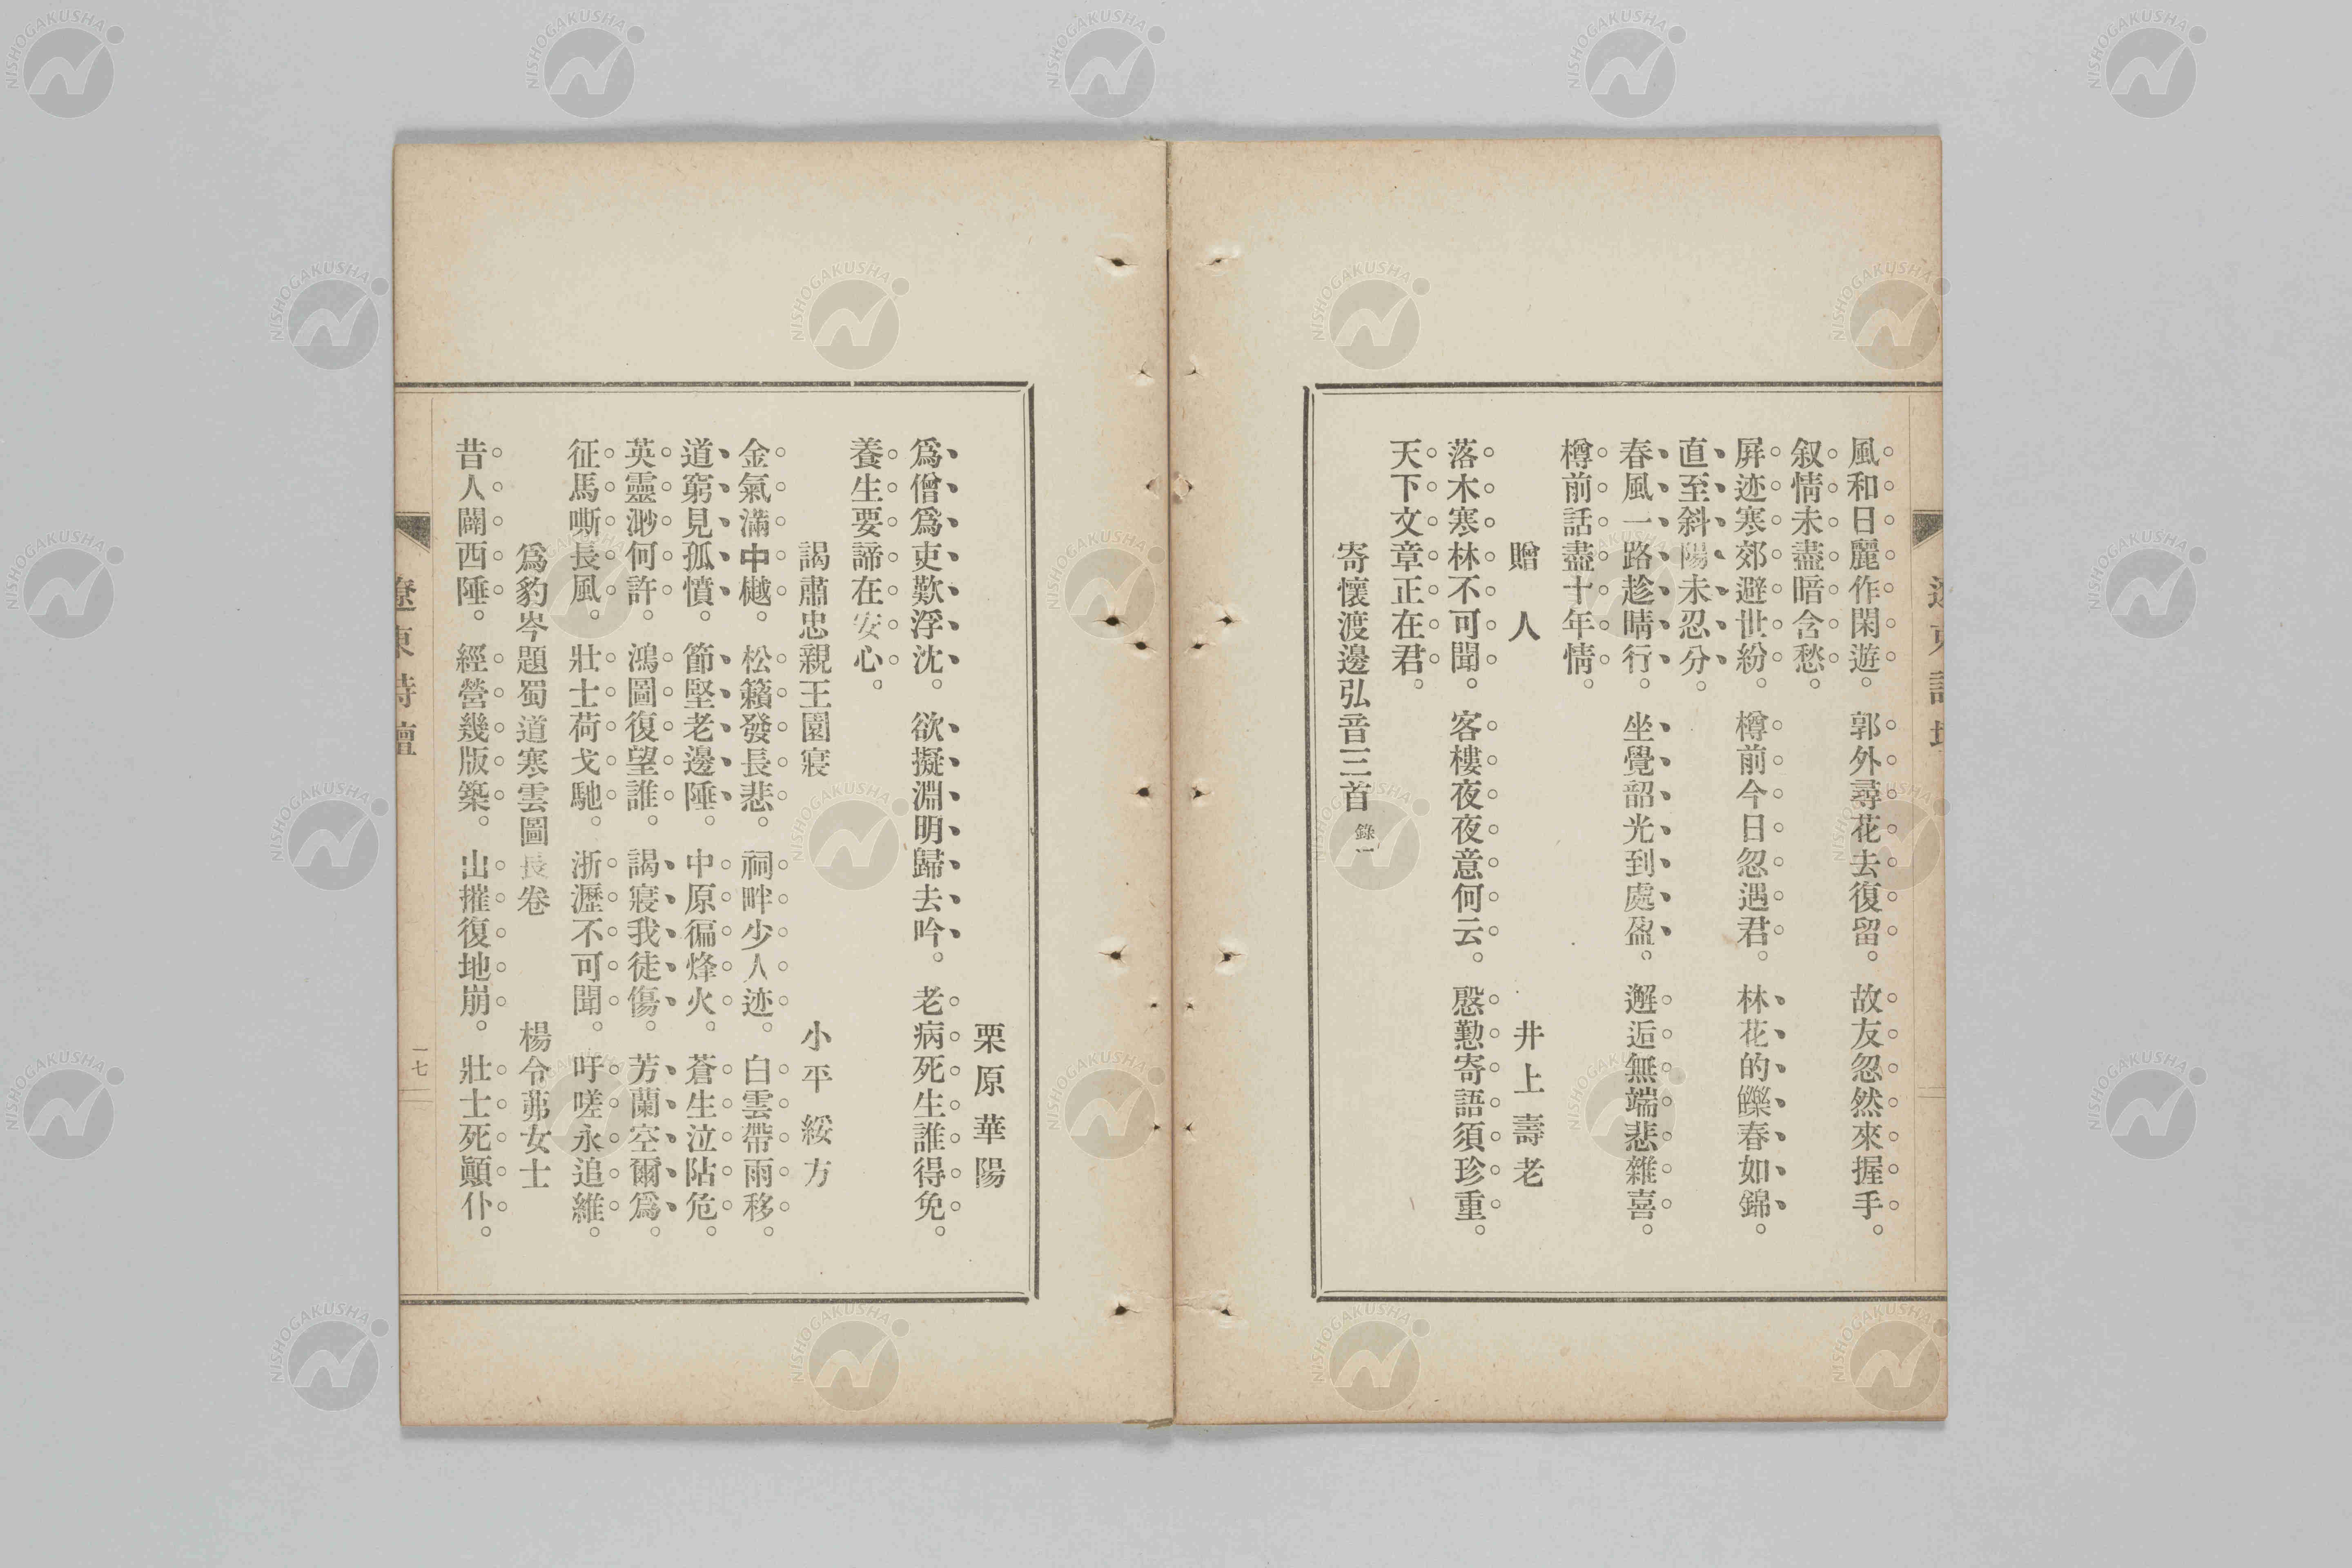 風和日麗作閑遊。郭外尋花去復留。故友忽然來握手。
叙情未盡暗含愁。
屏迹寒郊避世紛。樽前今日忽遇君。林花的皪春如錦。
直至斜陽未忍分。
春風一路趁晴行。坐覺韶光到處盈。邂逅無端悲雜喜。
樽前話盡十年情。
贈人 井上壽老
落木寒林不可聞。客樓夜夜意何云。慇懃寄語須珍重。
天下文章正在君。
寄懷渡邊弘音三首 錄一
栗原華陽
爲僧爲吏歎浮沈。欲擬淵明歸去吟。老病死生誰得免。
養生要諦在安心。
謁肅忠親王園寢 小平綏方
金氣滿中樾。松籟發長悲。祠畔少人迹。白雲帶雨移。
道窮見孤憤。節堅老邊陲。中原徧烽火。蒼生泣阽危。
英靈渺何許。鴻圖復望誰。謁寢我徒傷。芳蘭空爾爲。
征馬嘶長風。壯士荷戈馳。浙瀝不可聞。吁嗟永追維。
爲豹岑題蜀道寒雲圖長卷 楊令茀女士
昔人闢西陲。經營幾版築。山摧復地崩。壯士死顚仆。
遼東詩壇
一七